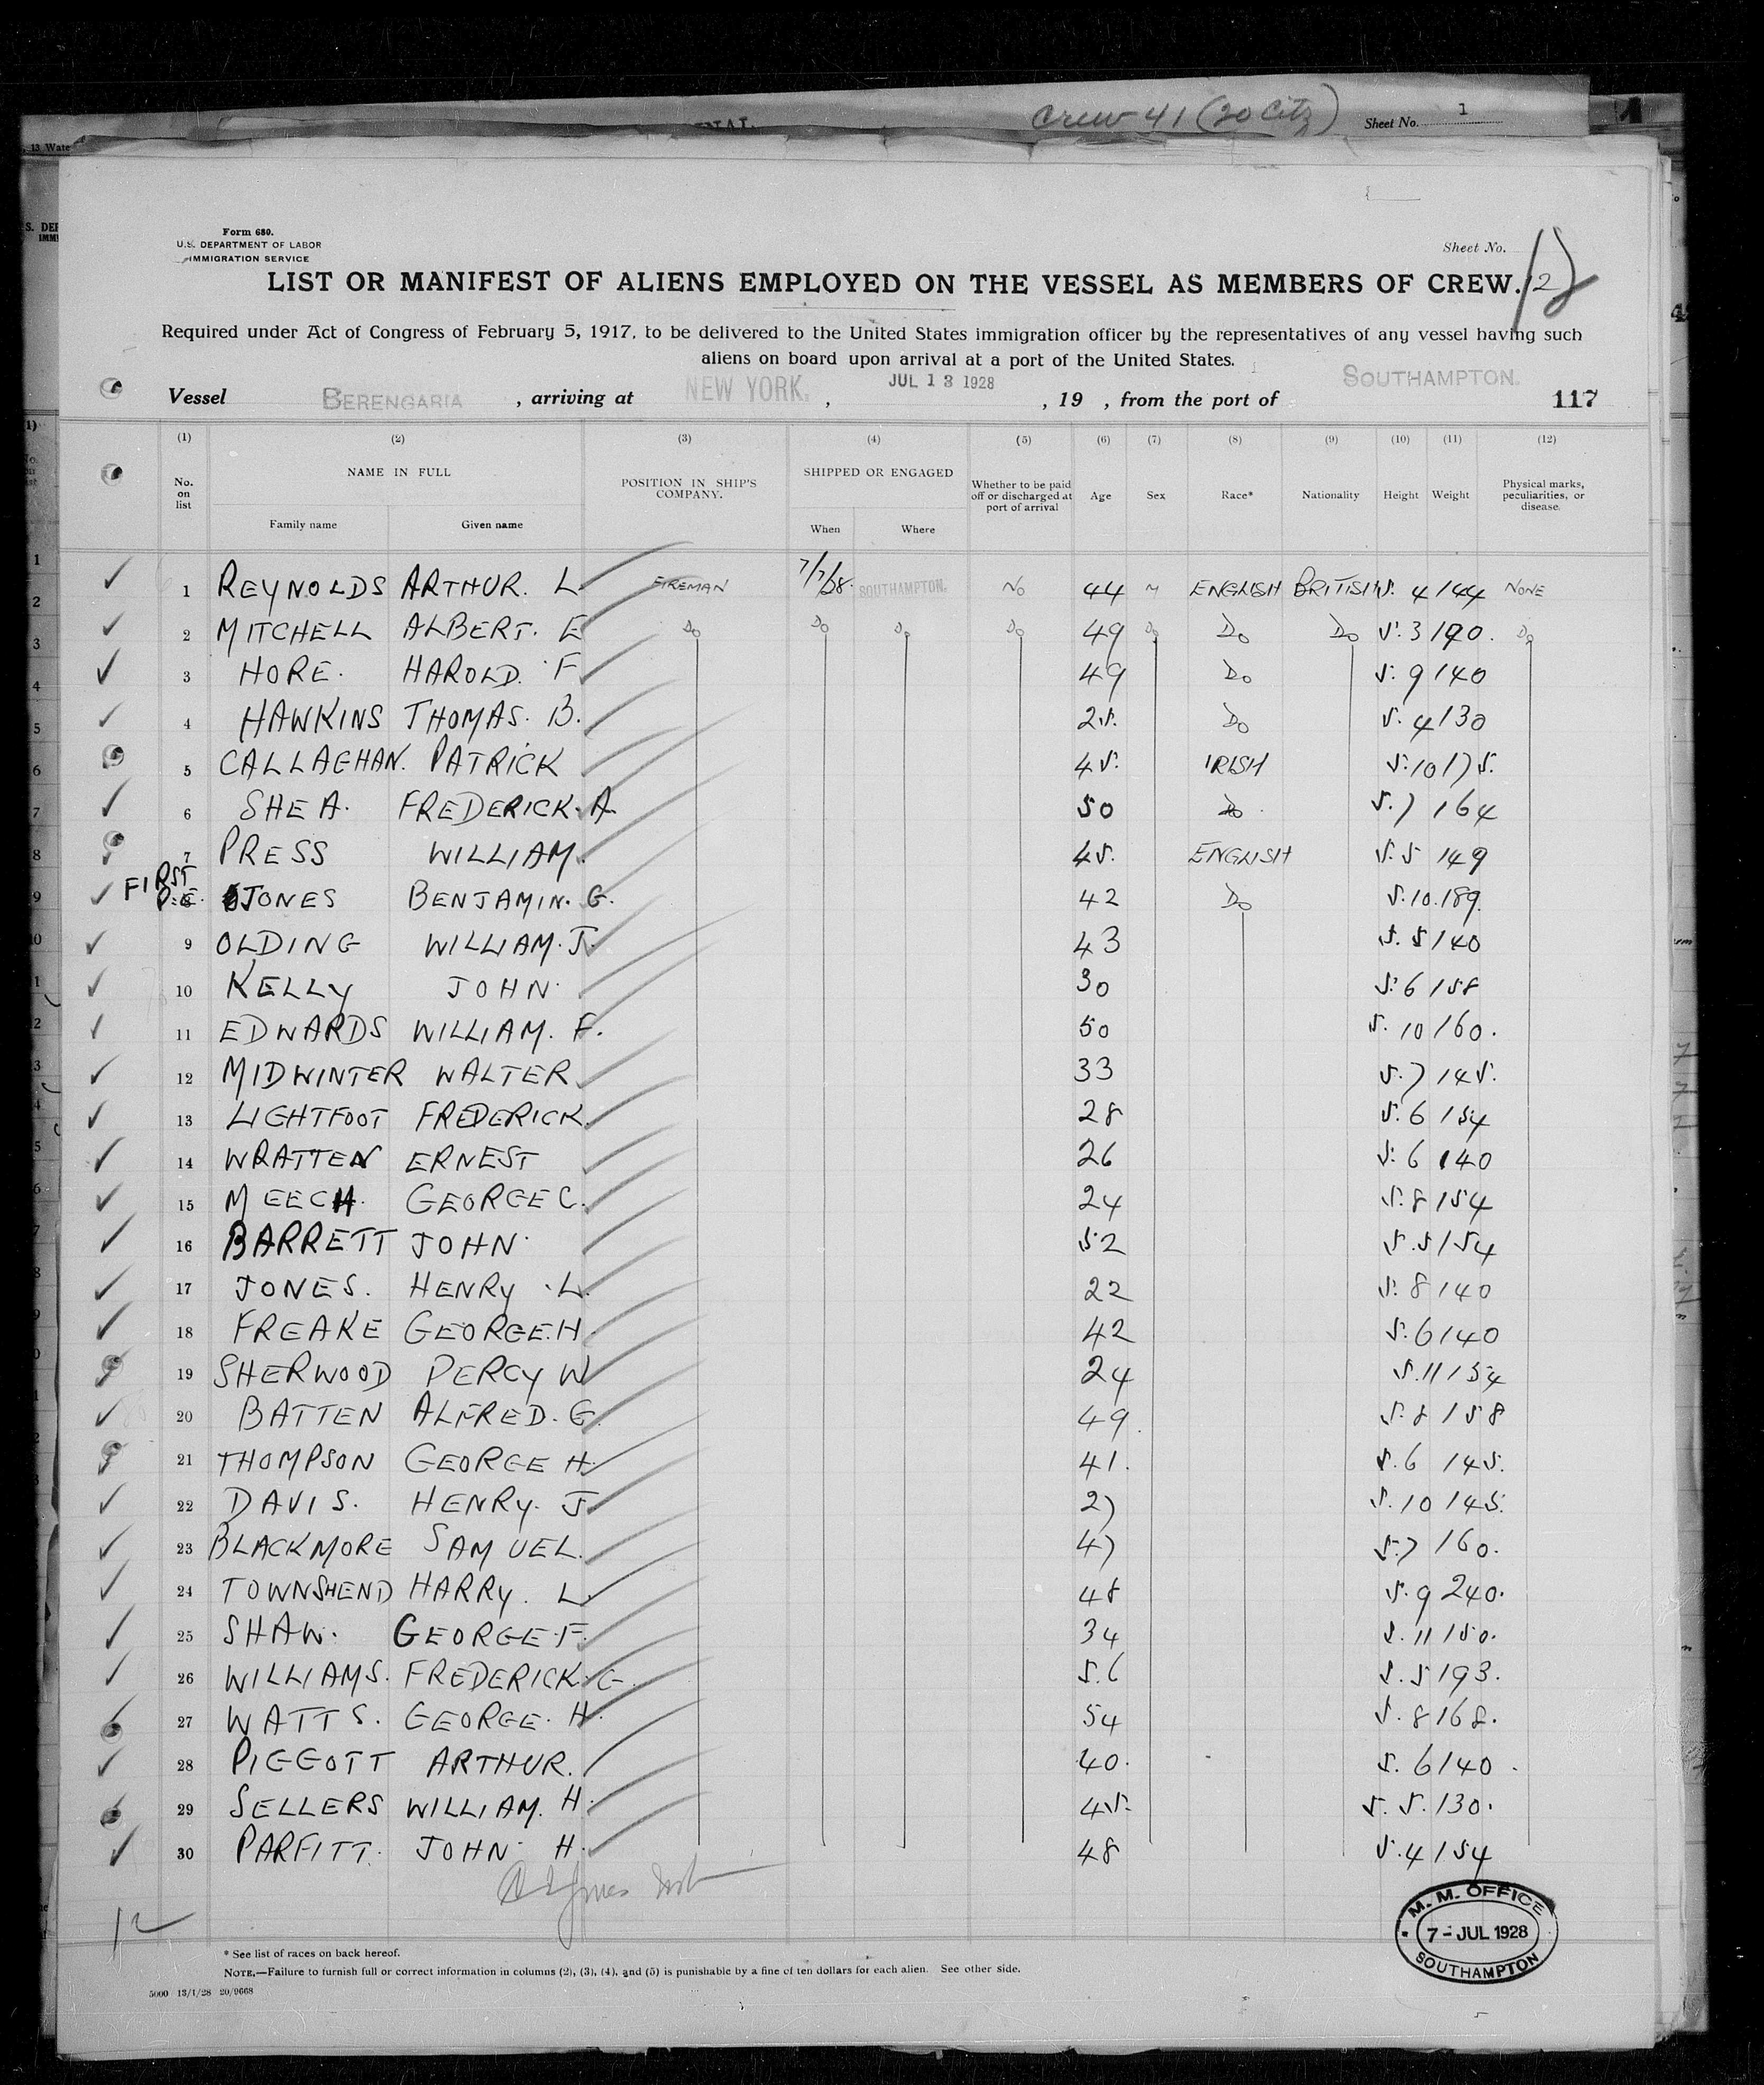 Crew 41 (20 Citz) Sheet No. 1
, 13 Wate
Form 680.
U.S. DEPARTMENT OF LABOR
IMMIGRATION SERVICE
Sheet No. 12
LIST OR MANIFEST OF ALIENS EMPLOYED ON THE VESSEL AS MEMBERS OF CREW.
Required under Act of Congress of February 5, 1917, to be delivered to the United States immigration officer by the representatives of any vessel having such
aliens on board upon arrival at a port of the United States.
Vessel BERENGARIA , arriving at NEW YORK. , JUL 13 1928 , 19 , from the port of SOUTHAMPTON. 117
(1) (2) (3) (4) (5) (6) (7) (8) (9) (10) (11) (12)
No. on list NAME IN FULL Family name Given name POSITION IN SHIP'S COMPANY. SHIPPED OR ENGAGED When Where Whether to be paid off or discharged at port of arrival Age Sex Race* Nationality Height Weight Physical marks, peculiarities, or disease.
1 REYNOLDS ARTHUR. L. FIREMAN 7/7/28. SOUTHAMPTON. No 44 M ENGLISH BRITISH 5. 4 144 NONE
2 MITCHELL ALBERT. E Do Do Do Do 49 Do Do Do 5. 3 190. Do
3 HORE. HAROLD. F 49 Do 5. 9 140
4 HAWKINS THOMAS. B. 25. Do 5. 4 130
5 CALLAGHAN. PATRICK 45. IRISH 5.10 175.
6 SHEA. FREDERICK. A. 50 Do 5.7 164
7 PRESS WILLIAM. 45. ENGLISH 5.5 149
FIRST JONES BENJAMIN. G. 42 Do 5.10.189.
9 OLDING WILLIAM. J. 43 5. 5 140
10 KELLY JOHN. 30 5.6 158
11 EDWARDS WILLIAM. F. 50 5. 10 160.
12 MIDWINTER WALTER. 33 5.7 145.
13 LIGHTFOOT FREDERICK. 28 5.6 154
14 WRATTEN ERNEST 26 5. 6 140
15 MEECH. GEORGE C. 24 5.8 154
16 BARRETT JOHN. 52 5.5 154
17 JONES. HENRY. L. 22 5. 8 140
18 FREAKE GEORGE.H. 42 5.6 140
19 SHERWOOD PERCY W 24 5.11 154
20 BATTEN ALFRED. G. 49. 5.8 158
21 THOMPSON GEORGE H. 41. 5.6 145.
22 DAVIS. HENRY. J 27 5.10 145.
23 BLACKMORE SAMUEL. 47 5.7 160.
24 TOWNSHEND HARRY. L. 48 5.9 240.
25 SHAW. GEORGE.F. 34 5.11 150.
26 WILLIAMS. FREDERICK. G. 56 5.5 193.
27 WATTS. GEORGE. H. 54 5.8 168.
28 PIGGOTT ARTHUR. 40. 5. 6 140.
29 SELLERS WILLIAM. H. 45. 5. 5. 130.
30 PARFITT. JOHN H. 48 5.4 154
12
M. M. OFFICE
7 - JUL 1928
SOUTHAMPTON
* See list of races on back hereof.
NOTE.—Failure to furnish full or correct information in columns (2), (3), (4), and (5) is punishable by a fine of ten dollars for each alien. See other side.
5000 13/1/28 20/9668